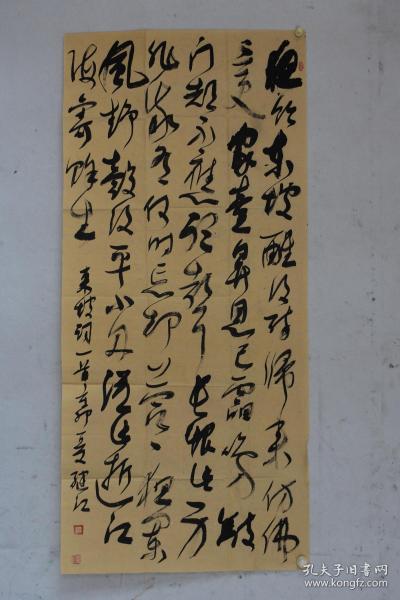 夜饮東坡醒復醉歸来仿佛
三更家童鼻息已雷鸣敲
门都不應倚杖听江声長恨此身
非我有何时忘却营营夜阑
風静縠纹平小舟従此逝江
海寄餘生
東坡词一首辛卯夏继江
孔夫子旧书网
www.kongfz.com